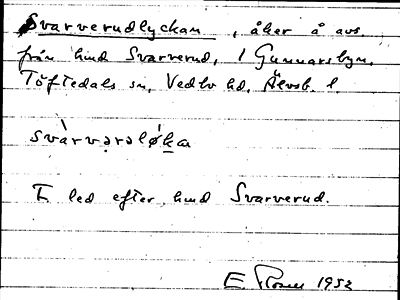 Svarverudlyckan, åker å avs.
från hmd Svarverud, 1 Gunnarsbyn,
Töftedals sn, Vedbo hd, Älvsb. l.
svàrvərəløḱa
F. led efter hmd Svarverud.
E. Rosen 1952